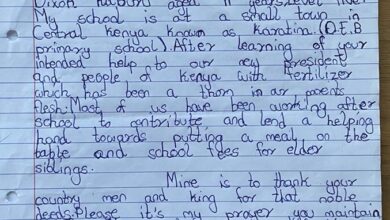 Dixon aged 11 years. I live.
My school is at a small town in
Central kenya known as Karatina.(D.E.B
primary school).After learning of your
intended help to our new president
and people of Kenya with fertilizer
which has been a thorn in our parents
flesh.Most of us have been working after
school to contribute and lend a helping
hand towards putting a meal on the
table and school fees for elder
siblings.
Mine is to thank your
country men and king for that noble
deeds.Please it's my prayer you maintain